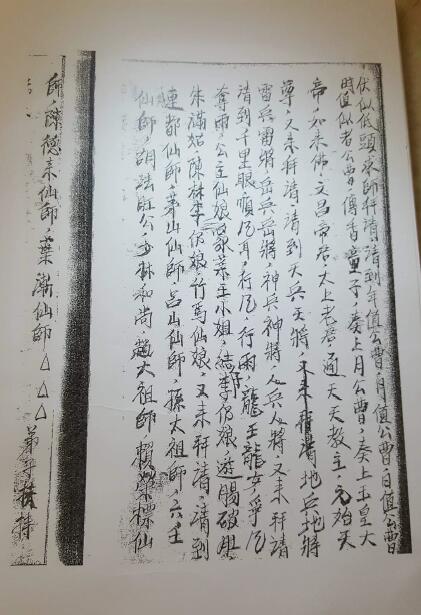 伏似低頭來師秤請請到年值公曹月值公曹日值公曹
時值似者公曹傳香童子奏上月公曹奏上玉皇大
帝如來佛文昌帝君太上老君通天教主元始天
尊又來秤請請到天兵天將又來秤請地兵地將
雷兵雷將岳兵岳將神兵神將人兵人將又來秤請
請到千里眼順風耳行風行雨龍王龍女爭風
奪雨公主仙娘家茶王小姐結李仙娘遊腸破肚
朱滿姑陳林李仙娘竹馬仙娘又來秤請請到
連都仙師茅山仙師呂山仙師孫太祖師六壬
仙師胡法旺公少林和尚趙大祖師賴標仙
師陳德來仙師葉漸仙師△△△弟子